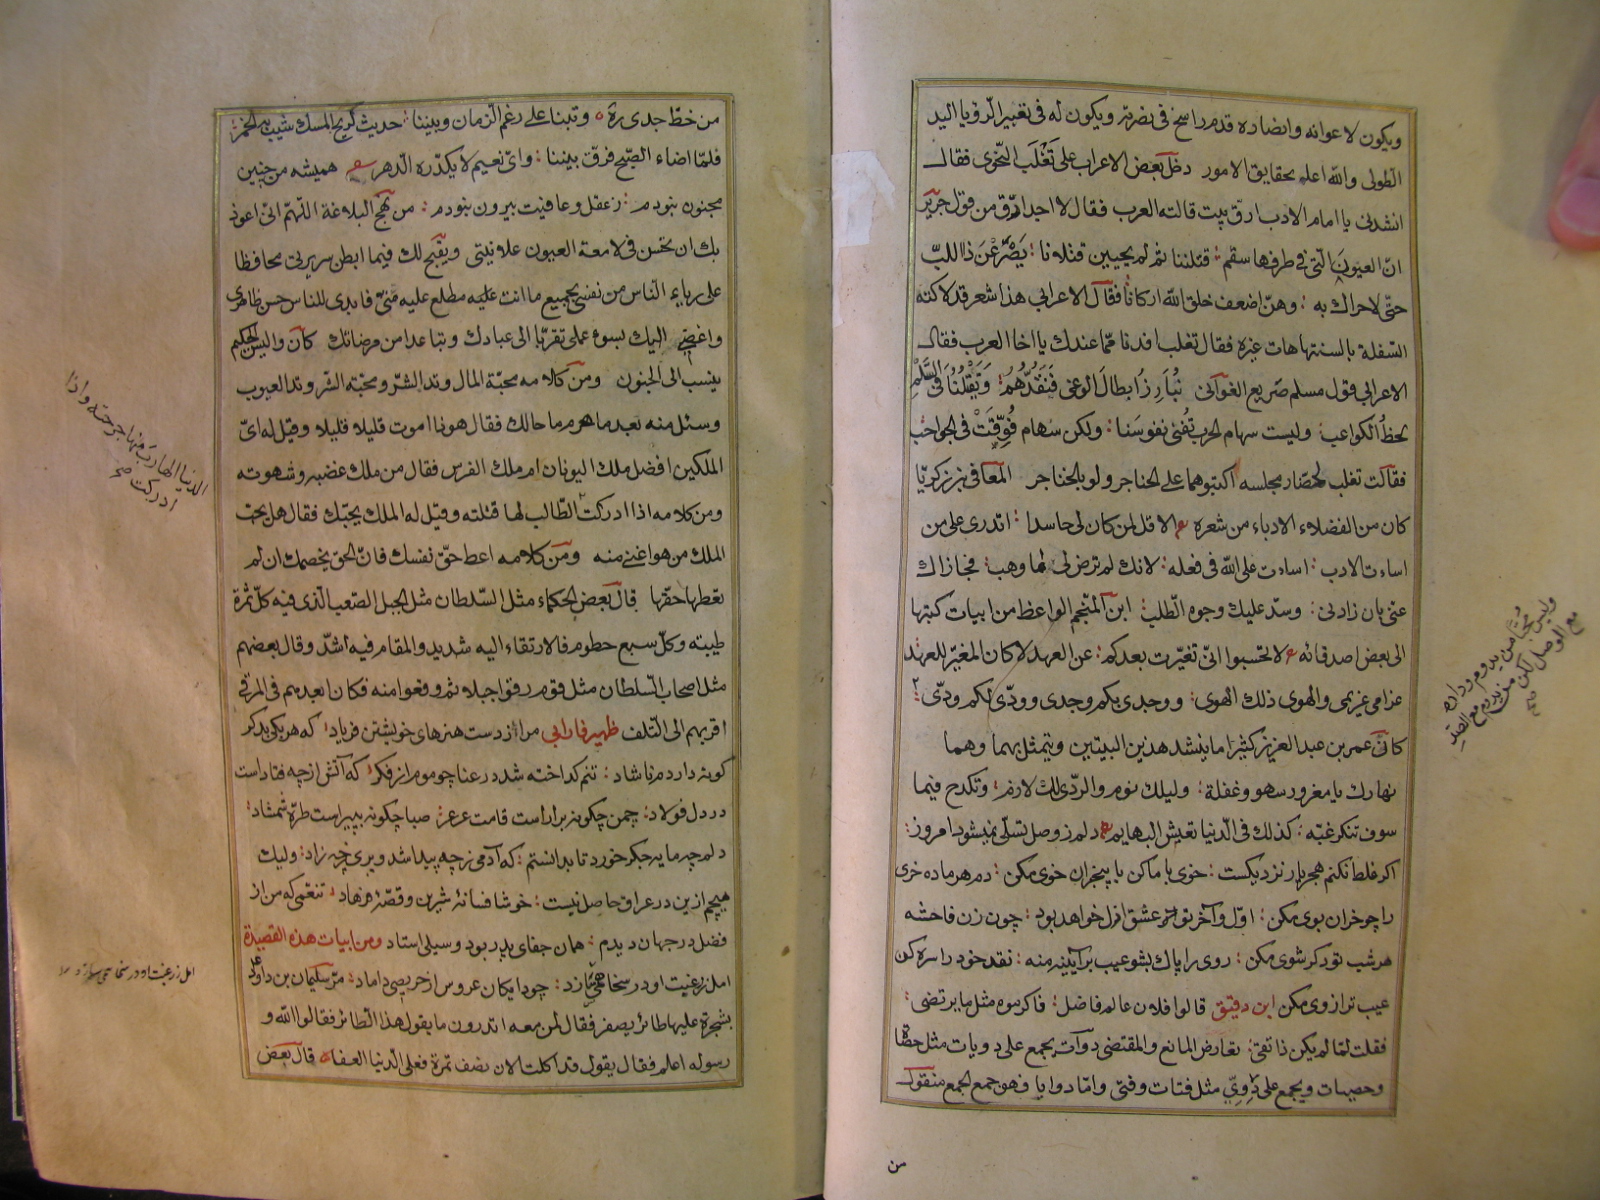 ويكون لاعوانه وانصاره قدم راسخ فى نصرته ويكون له فى تعبير الرؤيا اليد
الطولى والله اعلم بحقايق الامور دخل بعض الاعراب على تغلب النحوى فقال
انشدنى يا امام الادب ارق بيت قالته العرب فقال لا اجد ارق من قول جرير
ان العيون التى فى طرفها سقم قتلننا ثم لم يحيين قتلانا يصرعن ذا اللب
حتى لا حراك به وهن اضعف خلق الله اركانا فقال الاعرابى هذا شعر قد لاكته
السفلة بالسنتها هات غيره فقال تغلب افدنا مما عندك يا اخا العرب فقال
الاعرابى قول مسلم صريع الغوانى نبارز ابطال الوغى فنقدهم وتقتلنا فى السلم
لحظ الكواعب وليست سهام الحرب تفنى نفوسنا ولكن سهام فوقت فى الحواجب
فقالت تغلب لحضار مجلسه اكتبوهما على الحناجر ولو بالخناجر المعافى بن زكريا
كان من الفضلاء الادباء من شعره الا قل لمن كان لى حاسدا اتدرى على من
اسات الادب اسات على الله فى فعله لانك لم ترض لى ما وهب فجازاك
عنى بان زادنى وسد عليك وجوه الطلب ابن المنجم الواعظ من ابيات كتبها
الى بعض اصدقائه لا تحسبوا انى تغيرت بعدكم عن العهد لا كان المغير للعهد
غرامى غريمى والهوى ذلك الهوى ووجدى بكم وجدى وودى لكم ودى
كان عمر بن عبد العزيز كثيرا ما ينشد هذين البيتين ويتمثل بهما وهما
نهارك يا مغرور سهو وغفلة وليلك نوم والردى لك لازم وتكدح فيما
سوف تنكر غبه كذلك فى الدنيا تعيش البهايم دلم ز وصل تسلى نميشود امروز
اكر غلط نكنم هجر يار نزديكست خوى با ما كن با بيخبران خوى مكن دم هر ماده خرى
را چو خران بوى مكن اول و آخر تو عشق ازل خواهد بود چون زن فاحشه
هر شب تو دكر شوى مكن روى را پاك بشو عيب بر آيينه منه نقد خود را سره كن
عيب ترازوى مكن ابن دقيق قالوا فلان عالم فاضل فاكرموه مثل ما يرتضى
فقلت لما لم يكن ذا تقى تعارض المانع والمقتضى دوآت يجمع على دويات مثل حصاة
وحصيات ويجمع على دوى مثل فتات وفتى واما دوايا فهو جمع الجمع منقول
من
وليس محبا من يدوم وداده
مع الوصل لكن من يدوم مع الصد
من خط جدى ره وتبنا على رغم الزمان وبيننا حديث كريح المسك شيب به الخمر
فلما اضاء الصبح فرق بيننا واى نعيم لا يكدره الدهر هميشه من چنين
مجنون نبودم ز عقل وعافيت بيرون نبودم من نهج البلاغة اللهم انى اعوذ
بك ان تحسن فى لامعة العيون علانيتى ويقبح لك فيما ابطن سريرتى محافظا
على رياء الناس من نفسى بجميع ما انت عليه مطلع عليه منى فابدى للناس حسن ظاهرى
وافضى اليك بسوء عملى تقربا الى عبادك وتباعدا من مرضاتك كان واليس الحكيم
ينسب الى الجنون ومن كلامه محبة المال وتد الشر ومحبة الشر وتد العيوب
وسئل منه بعد ما هرم ما حالك فقال هوذا اموت قليلا قليلا وقيل له اى
الملكين افضل ملك اليونان ام ملك الفرس فقال من ملك غضبه وشهوته
ومن كلامه اذا ادركت الطالب لها قتلته وقيل له الملك يحبك فقال هل يحب
الملك من هو اغنى منه ومن كلامه اعط حق نفسك فان الحق يخصمك ان لم
تعطها حقها قال بعض الحكماء مثل السلطان مثل الجبل الصعب الذى فيه كل ثمرة
طيبته وكل سبع حطوم فالارتقاء اليه شديد والمقام فيه اشد وقال بعضهم
مثل اصحاب السلطان مثل قوم رقوا جبلا ثم وقعوا منه فكان ابعدهم فى المرقى
اقربهم الى التلف ظهير فاريابى مرا ز دست هنرهاى خويشتن فرياد كه هر يكى بدكر
كونه دارد م ناشاد تنم كداخته شد در عنا چو موم از فكر كه آتش از چه فتادست
در دل فولاد چمن چكونه براراست قامت عرعر صبا چكونه بپيراست طره شمشاد
دلم چه مايه جكر خورد تا بدانستم كه آدمى ز چه پيدا شد و پرى ز چه زاد وليك
هيچم ازين در عراق حاصل نيست خوشا فسانه شيرين و قصه فرهاد تنعمى كه من از
فضل در جهان ديدم همان جفاى پدر بود و سيلى استاد ومن ابيات هذه القصيدة
امل ز رغبت او در سخا همى نازد چو دايكان عروس از حريصى داماد مر سليمان بن داود
بشجرة عليها طائر يصفر فقال لمن معه اتدرون ما يقول هذا الطائر فقالوا الله و
رسوله اعلم فقال يقول قد اكلت الان نصف تمرة فعلى الدنيا العفا قال بعض
الدنيا الهارب منها جرحته واذا
ادركت صح
امل ز رغبت او در سخا